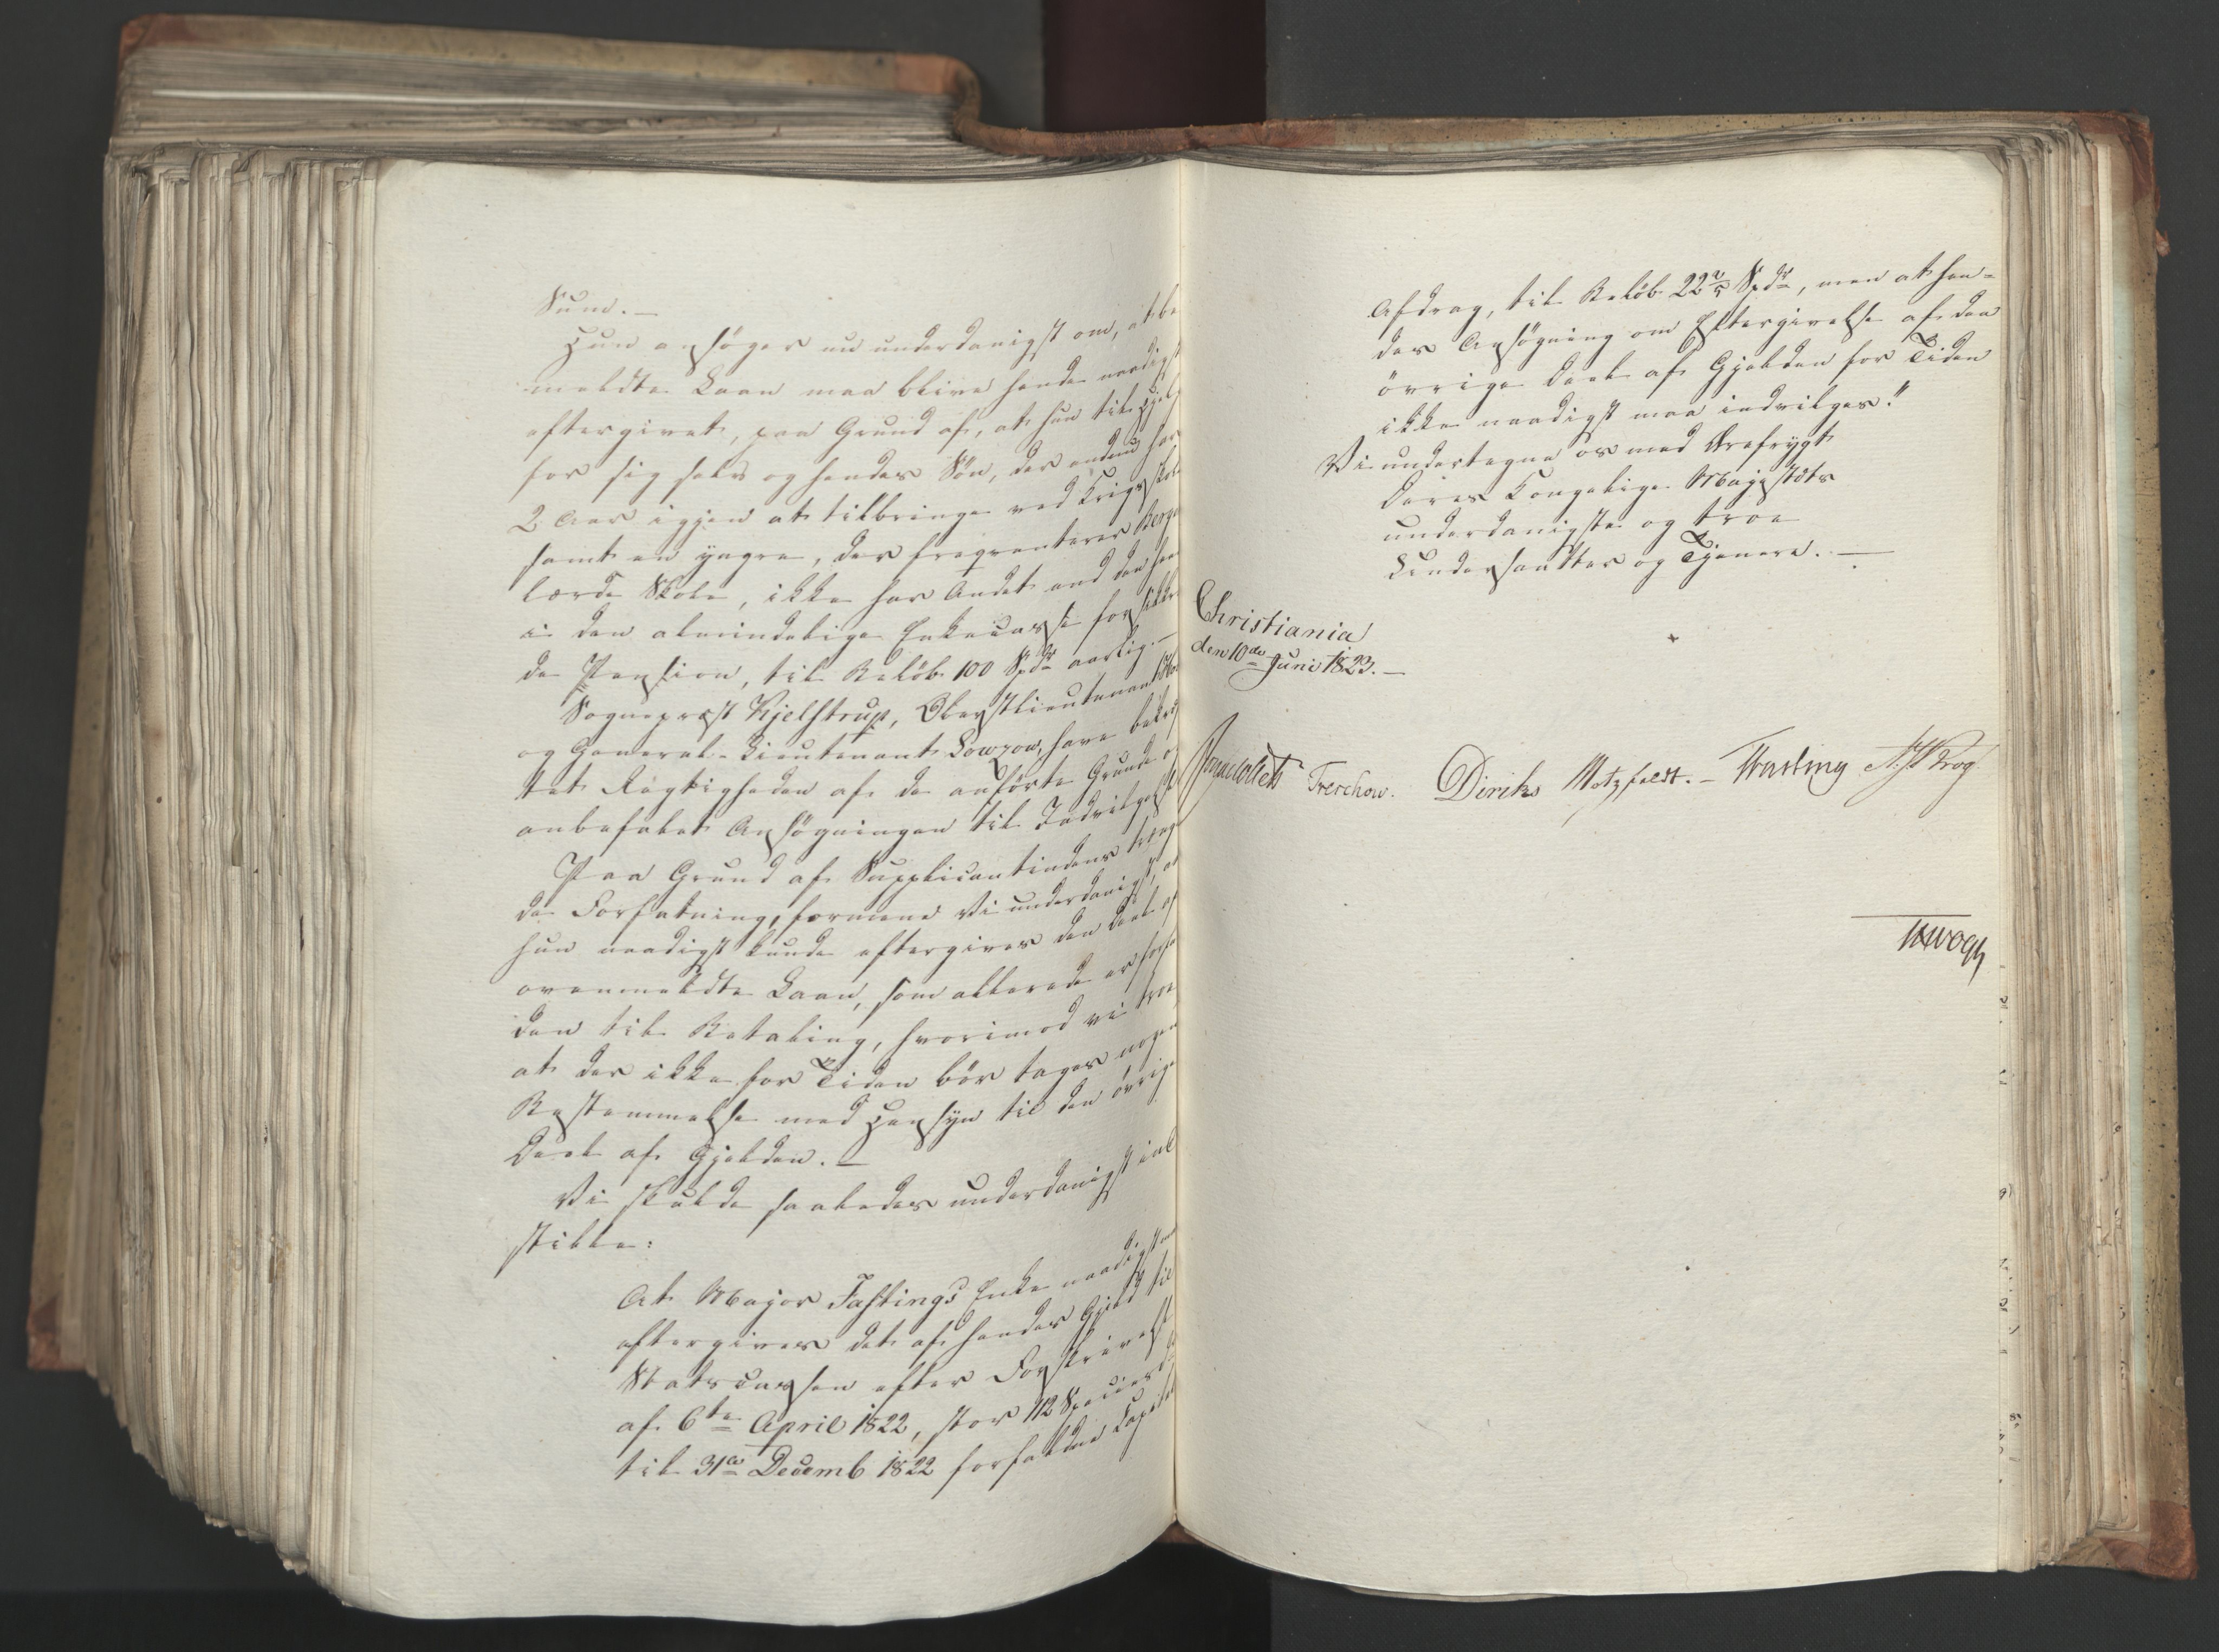 Sum. —
Hun ansøger nu underdanigst om, at be
meldte Laan maa blive hende naadigst
eftergivet, paa Grund af, at hun til Hjelp
for sig selv og hendes Søn, der endnu har
2 Aar igjen at tilbringe ved Krigsskolen
samt en yngre, der freqventerer Bergens
lærde Skole, ikke har Andet end den hen
i den almindelige Enkecasse forsikre
de Pension, til Beløb 100 Spdr aarlig. —
Sognepræst Kjelstrup, Oberstlieutenant
og General-Lieutenant Lowzow, have bekræf
tet Rigtigheden af de anførte Grunde og
anbefalet Ansøgningen til Indvilgelse
Paa Grund af Supplicantindens træng
de Forfatning, formene Vi underdanigst, at
hun naadigst kunde eftergives den Deel af
ovenmeldte Laan, som allerede er forfal
den til Betaling, hvorimod vi troe
at der ikke for Tiden bør tages nogen
Bestemmelse med Hensyn til den øvrige
Deel af Gjelden. —
Vi skulde saaledes underdanigst ind
stille:
At Major Fastings Enke naadigst
eftergives det af hendes Gjeld til
Statscassen efter Forskrivelse
af 6te April 1822, stor 112 Species
til 31te Decemb 1822 forfaldne Capital
Afdrag, til Beløb 22 2/5 Spdr, men at hen=
des Ansøgning om Eftergivelse af den
övrige Deel af Gjelden for Tiden
ikke naadigst maa indvilges."
Vi undertegne os med Ærefrygt
Deres Kongelige Majestæts
underdanigste og troe
Undersaatter og Tjenere. —
Christiania
den 10de Juni 1823. —
Jonas Collett Treschow. Diriks Motzfeldt. — Fasting N. J. Krog
HWogh